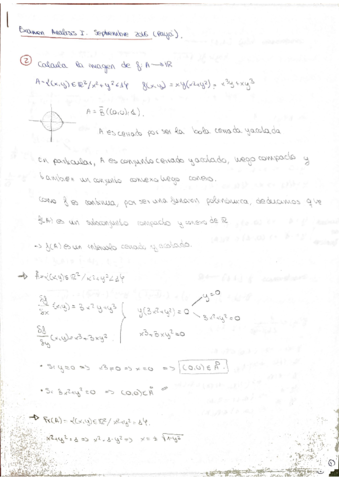 Examen Analisis I. Septiembre 2016 (Payá).
② Calcula la imagen de f: A → ℝ
A = {(x,y) ∈ ℝ² / x² + y² ≤ 1} f(x,y) = xy(x²+y²) = x³y + xy³
A = B̄((0,0), 1)
A es cerrado por ser la bola cerrada y acotada
En particular, A es conjunto cerrado y acotado, luego compacto y
tambien un conjunto convexo luego conexo.
Como f es continua, por ser una funcion polinomica, deducimos que
f(A) es un subconjunto compacto y conexo de ℝ
→ f(A) es un intervalo cerrado y acotado.
→ Å = {(x,y) ∈ ℝ² / x² + y² < 1}
∂f/∂x (x,y) = 3x²y + y³ y(3x²+y²) = 0 y = 0
3x²+y² = 0
∂f/∂y (x,y) = x³ + 3xy² x³ + 3xy² = 0
• Si y = 0 ⇒ x³ = 0 ⇒ x = 0 ⇒ (0,0) ∈ Å
• Si 3x²+y² = 0 ⇒ (0,0) ∈ Å
→ Fr(A) = {(x,y) ∈ ℝ² / x²+y² = 1}
x²+y² = 1 ⇔ x² = 1-y² ⇒ x = ± √1-y²